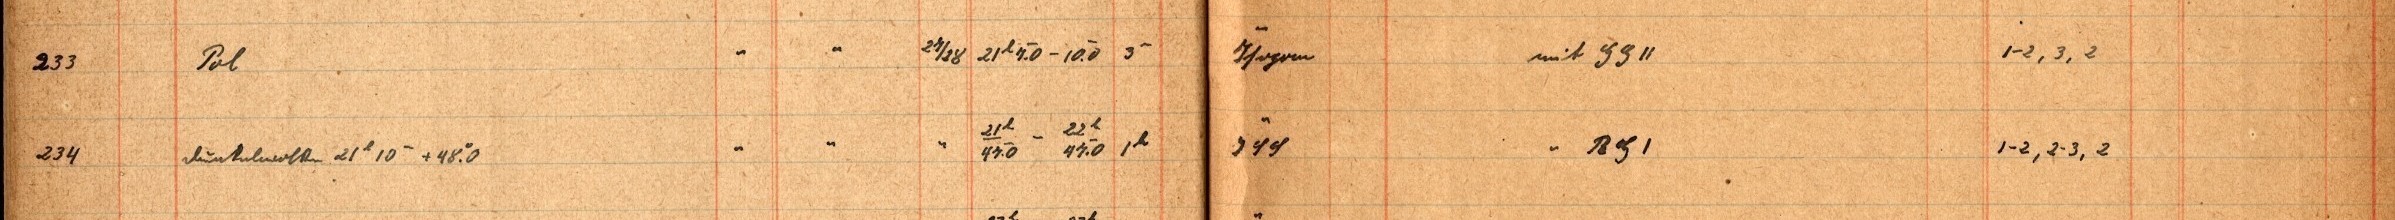 233 Pol " " 27/28 21ʰ 7.0 – 10.0 3ᵐ " mit GG 11 1-2, 3, 2
234 Dunkelwolken 21ʰ 10ᵐ + 48.°0 " " " 21ʰ 47.0 – 22ʰ 47.0 1ʰ " " RG 1 1-2, 2-3, 2